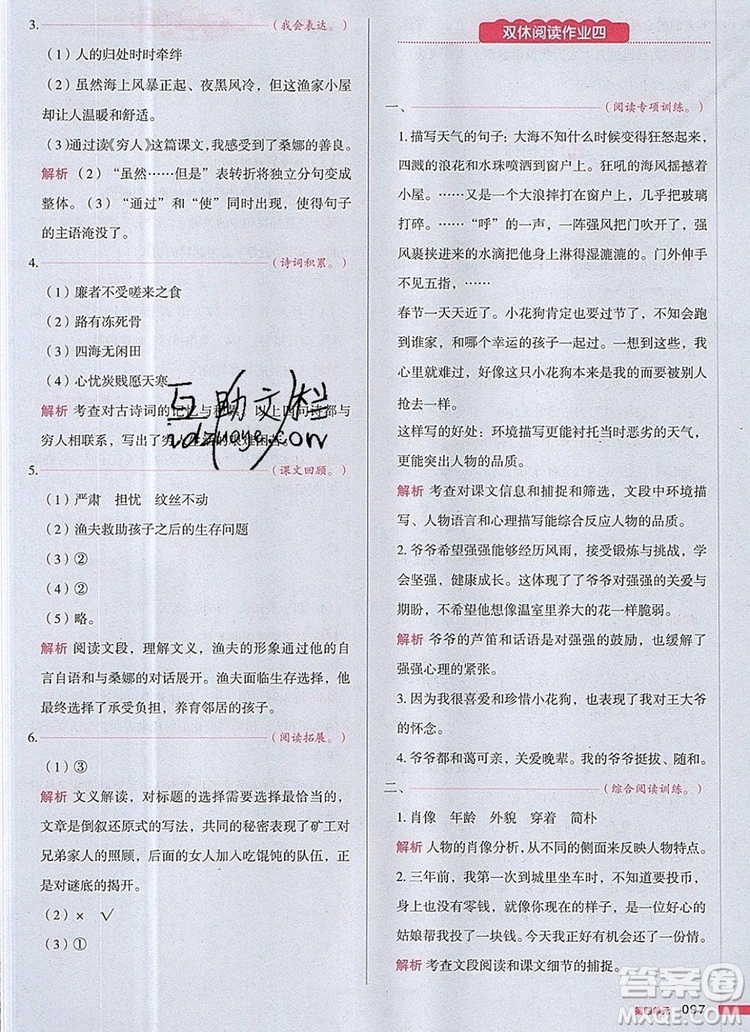 3.
（我会表达。）
（1）人的归处时时牵绊
（2）虽然海上风暴正起、夜黑风冷，但这渔家小屋
却让人温暖和舒适。
（3）通过读《穷人》这篇课文，我感受到了桑娜的善良。
解析 （2）“虽然……但是”表转折将独立分句变成
整体。（3）“通过”和“使”同时出现，使得句子
的主语淹没了。
4.
（诗词积累。）
（1）廉者不受嗟来之食
（2）路有冻死骨
（3）四海无闲田
（4）心忧炭贱愿天寒
解析 考查对古诗词的记忆与积累，以上四句诗都与
穷人相联系，写出了穷人生活的艰难困苦。
5.
（课文回顾。）
（1）严肃 担忧 纹丝不动
（2）渔夫救助孩子之后的生存问题
（3）②
（4）②
（5）略。
解析 阅读文段，理解文义，渔夫的形象通过他的自
言自语和与桑娜的对话展开。渔夫面临生存选择，
最终选择了承受负担，养育邻居的孩子。
6.
（阅读拓展。）
（1）③
解析 文义解读，对标题的选择需要整体的把握，
文章是倒叙还原式的写法，共同的秘密表现了矿工对
兄弟家人的照顾，后面的女人加入吃馄饨的队伍，正
是对谜底的揭开。
（2）× √
（3）①
双休阅读作业四
一、
（阅读专项训练。）
1. 描写天气的句子：大海不知什么时候变得狂怒起来，
四溅的浪花和水珠喷洒到窗户上。狂吼的海风摇撼着
窗户……又一个大浪摔打在窗户上，几乎把玻璃
打碎。……“呼”的一声，一阵强风把门吹开了，强
风裹挟进来的水滴把她身上淋得湿漉漉的。门外伸手
不见五指，……
春节一天天近了。……小花狗肯定也要被吃掉的，跑到
谁家，和谁家的孩子一起过年。……我难过极了，我
心里就想：要是能把这只小花狗抢来就好了，但怎么
抢去呢？……
这样写的好处：环境描写更能衬托当时恶劣的天气，
更能突出人物的品质。
解析 考查对课文信息和捕捉和筛选，文段中环境描
写、人物语言和心理描写能综合反应人物的品质。
2. 爷爷希望强强能够经历风雨，接受锻炼与挑战，学
会坚强，健康成长。这体现了了爷爷对强强的关爱与
期盼，不希望他像温室里养大的花一样脆弱。
解析 爷爷的芦笛和话语是对强强的鼓励，反衬了强
强心理的紧张。
3. 因为我关爱和珍惜小花狗，所以体现了我对王大爷
的怀念。
4. 爷爷都和蔼可亲，关爱晚辈。我的爷爷挺拔、随和。
二、
（综合阅读训练。）
1. 肖像 年龄 外貌 穿着 简朴
解析 人物的肖像分析，从不同的侧面来反映人物特点。
2. 三年前，我到城里坐车时，不知道要投币，
身上没有零钱，就给你一块钱。就是那个好心的
姑娘帮我投了一块钱。今天我正好还了一份情。
解析 考查文段阅读和课文细节的捕捉。
第四单元 097
互助文档
答案圈
MXQE.COM